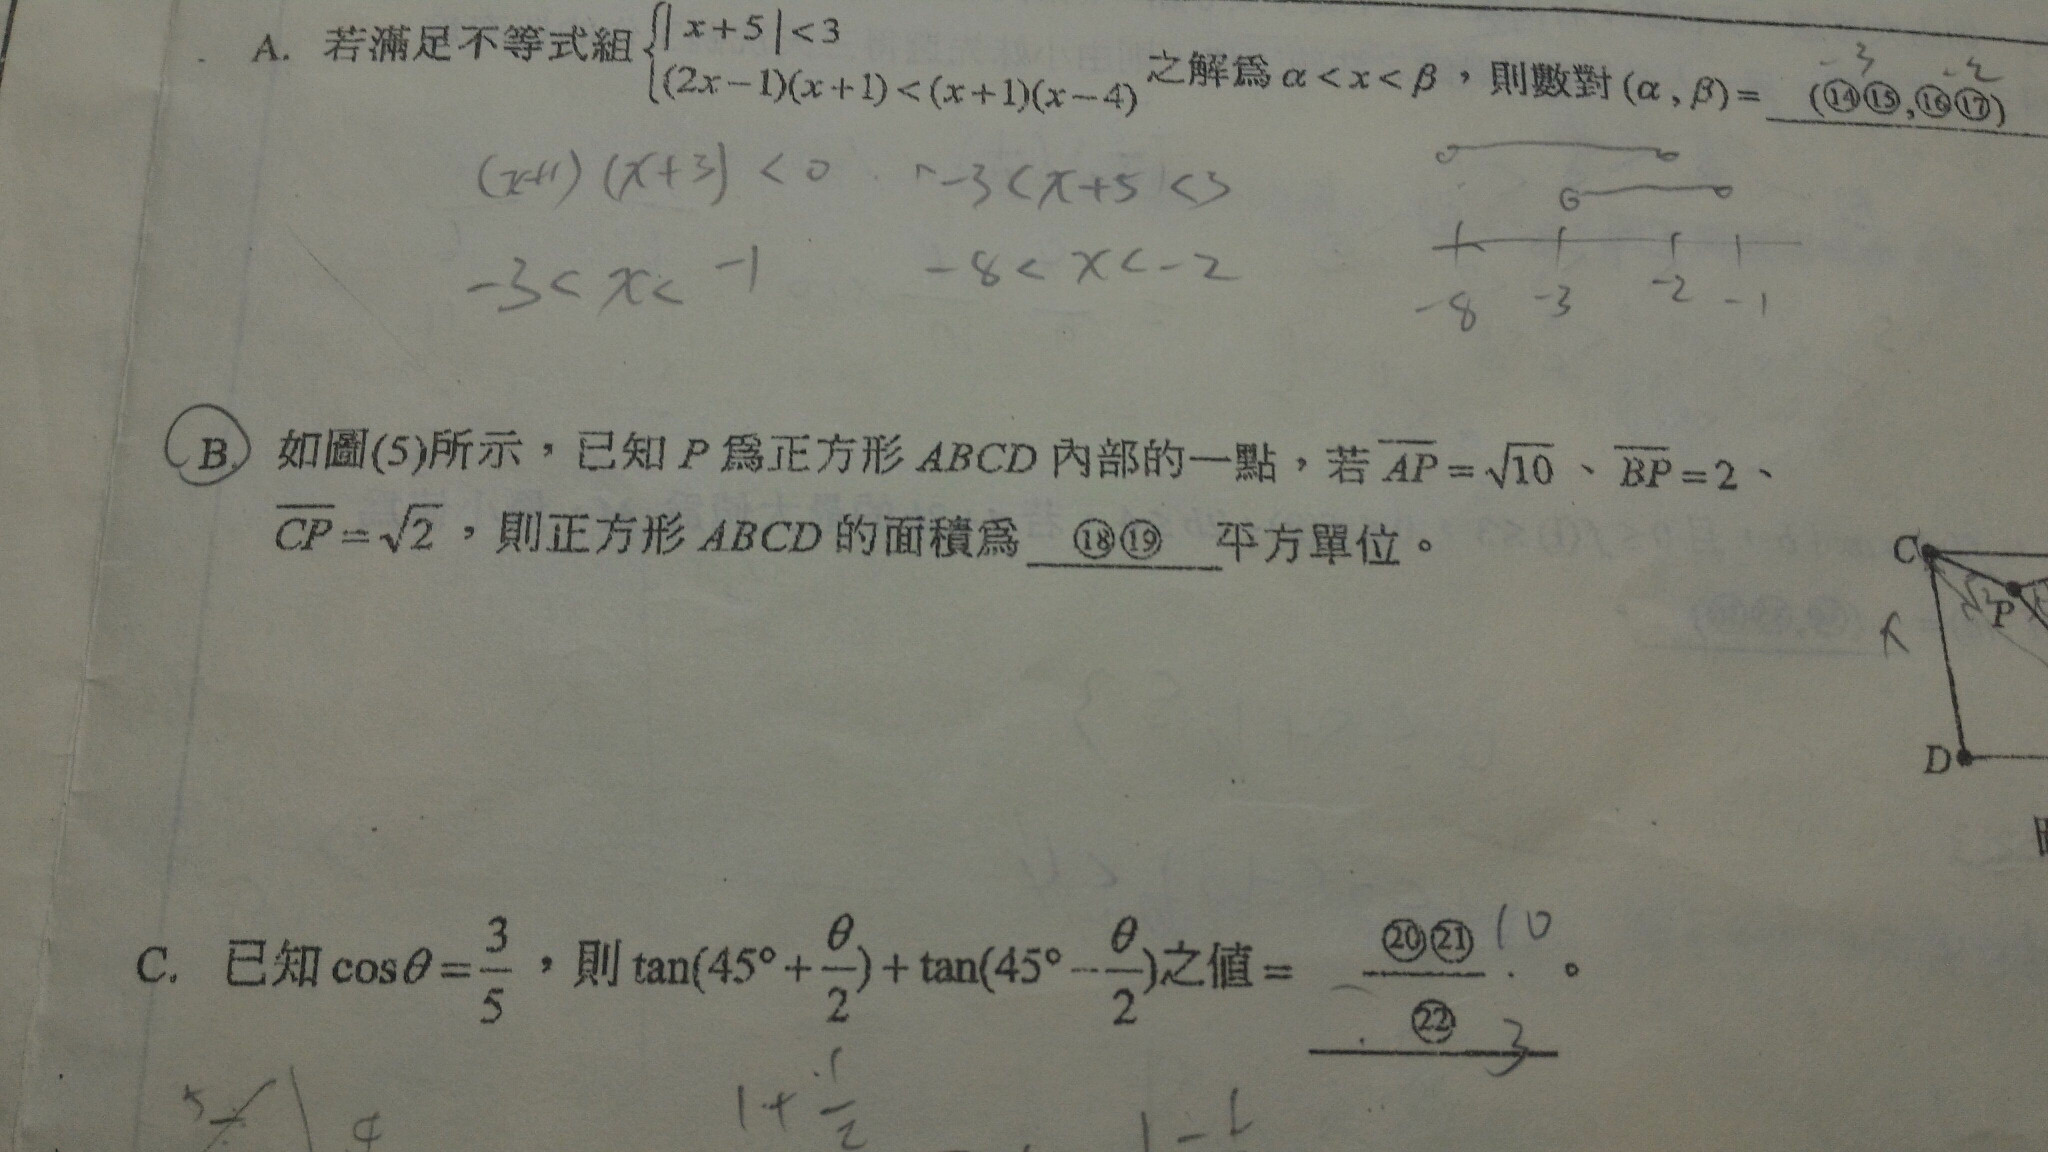 A. 若滿足不等式組{|x+5|<3
(2x−1)(x+1)<(x+1)(x−4) 之解為 α<x<β，則數對(α, β)= (⑭⑮,⑯⑰)
-3 -2
(x+1)(x+3)<0 -3<x+5<3
-3<x<-1 -8<x<-2
-8 -3 -2 -1
B. 如圖(5)所示，已知 P 為正方形 ABCD 內部的一點，若 AP=√10、BP=2、
CP=√2，則正方形 ABCD 的面積為 ⑱⑲ 平方單位。
C
P
D
C. 已知 cosθ=3/5，則 tan(45°+θ/2)+tan(45°−θ/2)之值= ⑳㉑/㉒。
10
3
5 4 1+1/2 1-1